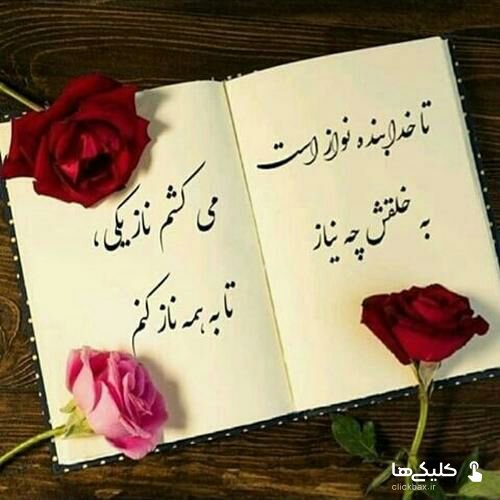 تا خدا بنده نواز است
به خلقش چه نیاز
می کشم ناز یکی،
تا به همه ناز کنم
کلیکی‌ها
clickbax.ir